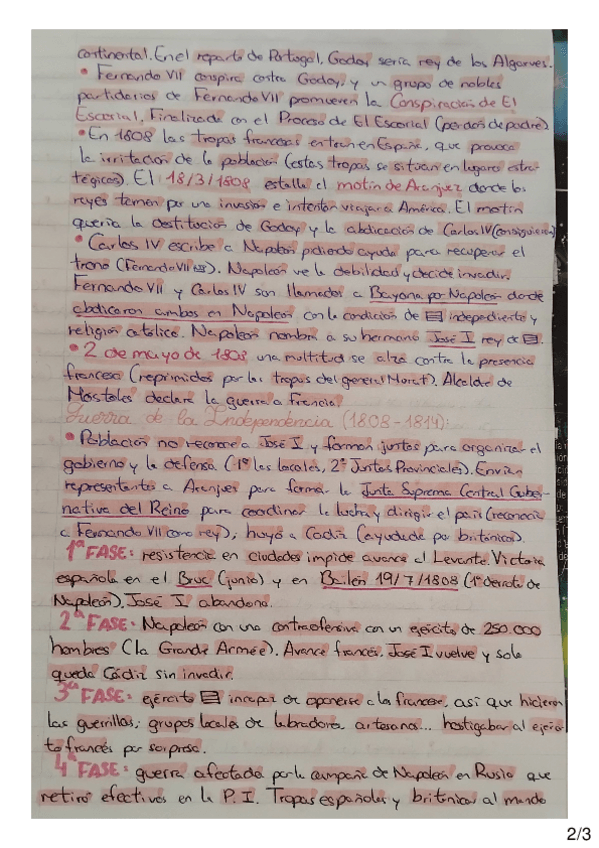 continental. En el reparto de Portugal, Godoy sería rey de los Algarves.
• Fernando VII conspira contra Godoy, y un grupo de nobles
partidarios de Fernando VII promueven la Conspiración de El
Escorial. Finalizada con el Proceso de El Escorial (perdón de padre)
• En 1808 las tropas francesas entran en España, que provoca
la irritación de la población (estas tropas se sitúan en lugares estra-
tégicos). El 18/3/1808 estalla el motín de Aranjuez donde los
reyes temen por una invasión e intentan viajar a América. El motín
quería la destitución de Godoy y la abdicación de Carlos IV (consiguieron)
• Carlos IV escribe a Napoleón pidiendo ayuda para recuperar el
trono (Fernando VII). Napoleón ve la debilidad y decide invadir.
Fernando VII y Carlos IV son llamados a Bayona por Napoleón donde
abdicaron ambos en Napoleón con la condición de independiente y
religión católica. Napoleón nombra a su hermano José I rey de
• 2 de mayo de 1808 una multitud se alza contra la presencia
francesa (reprimidos por las tropas del general Murat). Alcalde de
Móstoles declara la guerra a Francia
Guerra de la Independencia (1808-1814):
• Población no reconoce a José I y forman juntas para organizar el
gobierno y la defensa (1º las locales, 2º Juntas Provinciales). Envían
representantes a Aranjuez para formar la Junta Suprema Central Guber-
nativa del Reino para coordinar la lucha y dirigir el país (reconocía
a Fernando VII como rey), huyó a Cádiz (ayudada por británicos).
1ª FASE: resistencia en ciudades impide avance al Levante. Victoria
española en el Bruc (junio) y en Bailén 19/7/1808 (1ª derrota de
Napoleón). José I abandona.
2ª FASE: Napoleón con una contraofensiva con un ejército de 250.000
hombres (la Grande Armée). Avance francés. José I vuelve y solo
queda Cádiz sin invadir.
3ª FASE: ejército incapaz de oponerse a los franceses, así que hicieron
las guerrillas; grupos locales de labradores, artesanos... hostigaban al ejérci-
to francés por sorpresa.
4ª FASE: guerra afectada por la campaña de Napoleón en Rusia que
retiró efectivos en la P. I. Tropas españolas y británicas al mando
2/3